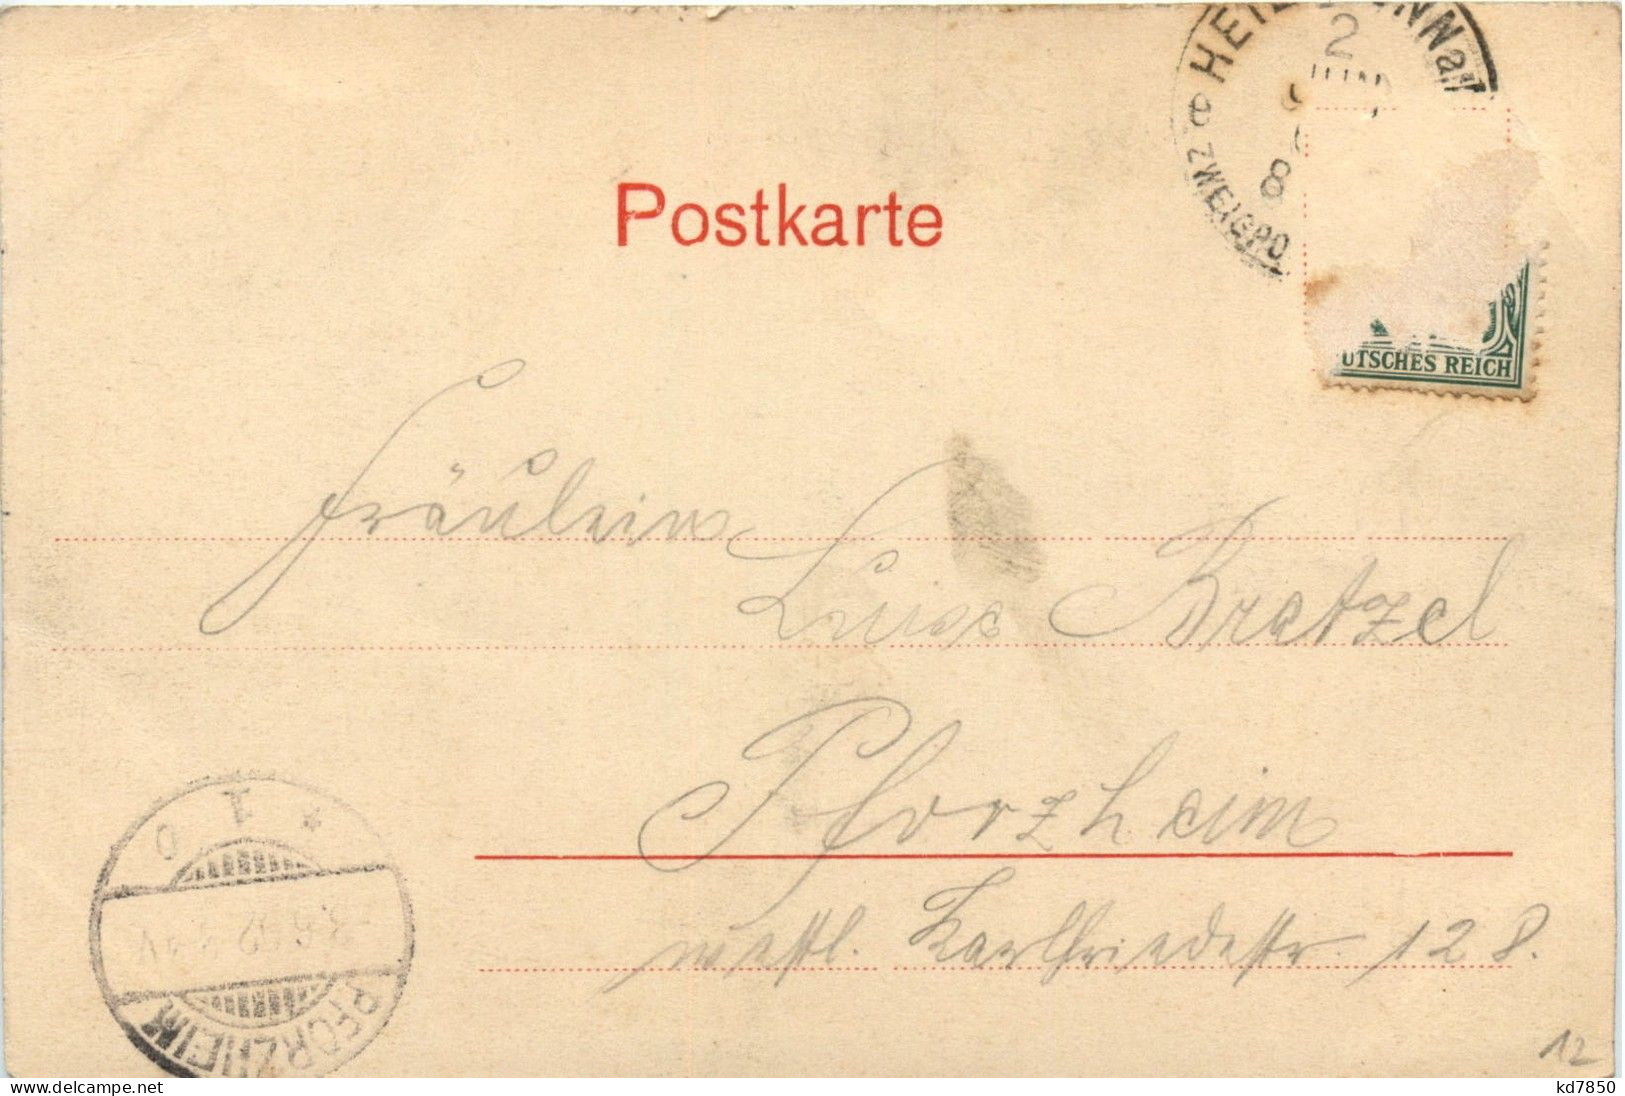 2
JUN
8
ZWEIGPO
Postkarte
UTSCHES REICH
Fräulein
Luise Bretzel
Pforzheim
westl. Karlfriedstr. 128.
PFORZHEIM
12
delcampe.net
kd7850